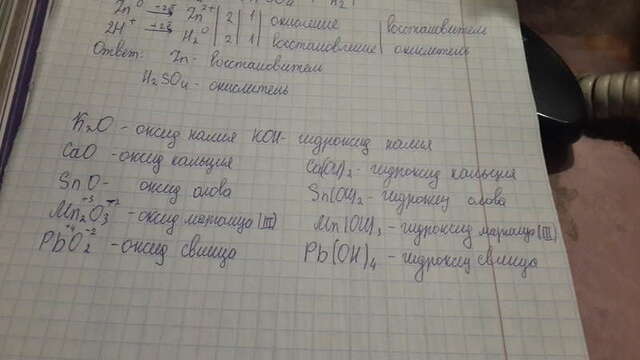 Zn⁰ -2e̅→ Zn²⁺ | 2 | 1 | окисление | восстановитель
2H⁺ +2e̅→ H₂⁰ | 2 | 1 | восстановление | окислитель
Ответ: Zn - восстановитель
H₂SO₄ - окислитель
K₂O - оксид калия KOH - гидроксид калия
CaO - оксид кальция Ca(OH)₂ - гидроксид кальция
SnO - оксид олова Sn(OH)₂ - гидроксид олова
Mn₂⁺³O₃⁻² - оксид марганца (III) Mn(OH)₃ - гидроксид марганца (III)
Pb⁺⁴O₂⁻² - оксид свинца Pb(OH)₄ - гидроксид свинца